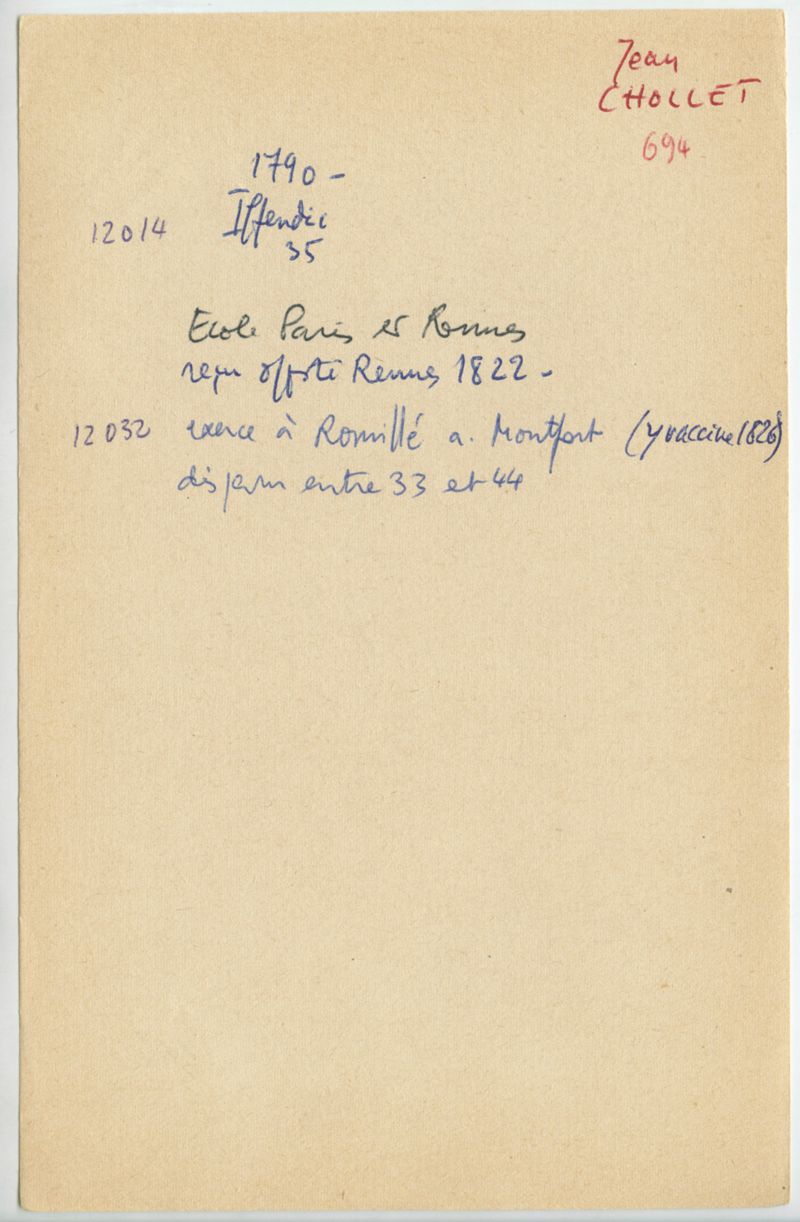 Jean
CHOLLET
694
1790 -
Iffendic
35
12014
Ecole Paris et Rennes
reçu off sté Rennes 1822 -
12032 exerce à Romillé a. Montfort (y vaccine 1826)
disparu entre 33 et 44